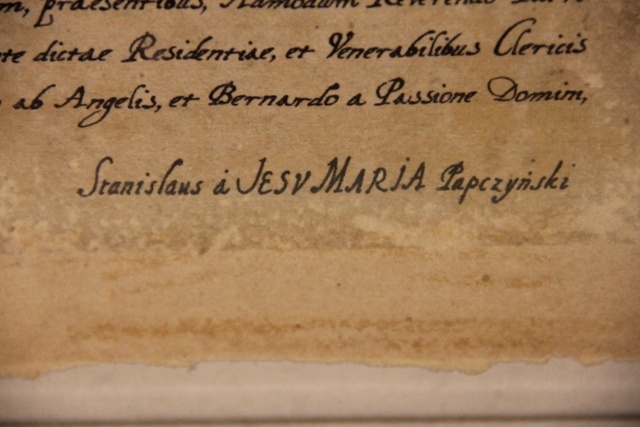 praesentibus, Admodum Reverendo
dictae Residentiae, et Venerabilibus Clericis
ab Angelis, et Bernardo a Passione Domini,
Stanislaus à JESV MARIA Papczyński